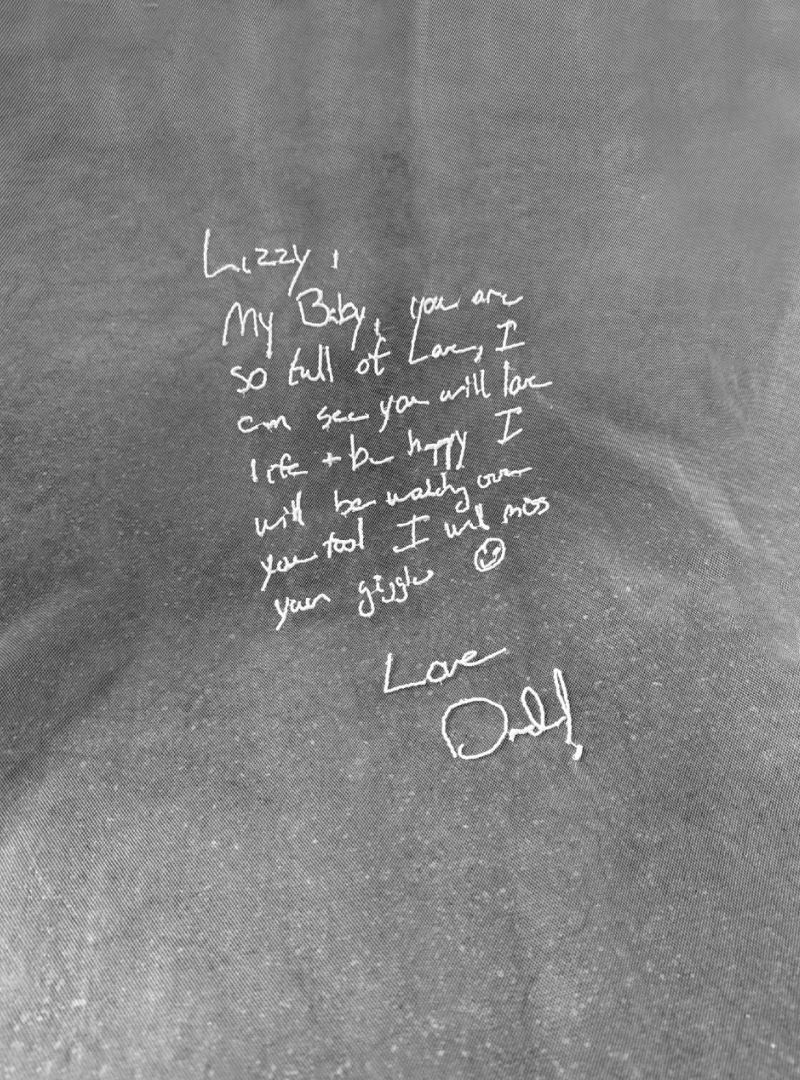 Lizzy,
My Baby, you are
so full of Love, I
can see you will love
life + be happy I
will be watching over
you too! I will miss
your giggles ☺
Love
Daddy